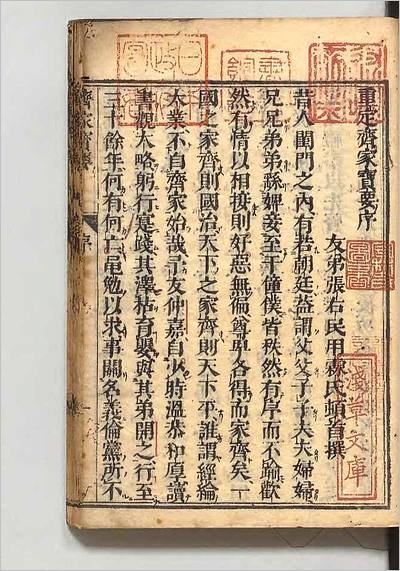 重定齊家寶要序
友弟張右民用霖氏頓首撰
昔人閨門之內有若朝廷益謂父父子子夫夫婦婦
兄兄弟弟緜婢妾至于僮僕皆秩然有序而不踰歡
然有情以相接則好惡無偏尊卑各得而家齊矣一
國之家齊則國治天下之家齊則天下平誰謂經綸
大業不自齊家始哉予友仲嘉自少時溫恭和厚讀
書觀大略躬行寔踐其澤枯育嬰與其弟開之行至
三十餘年何有何亡黽勉以求事關名義倫黨所不
齊家寶要 序
淺草文庫